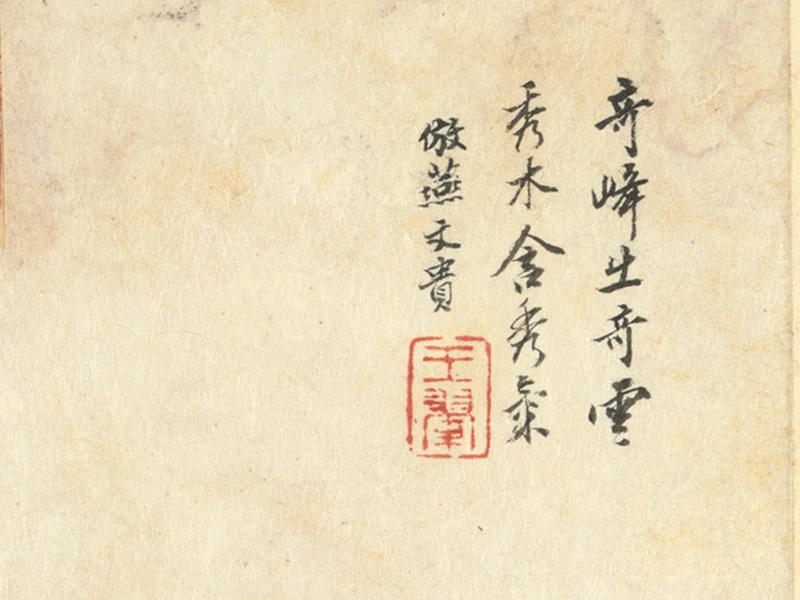 奇峰出奇雲
秀木含秀氣
倣燕文貴
王翬